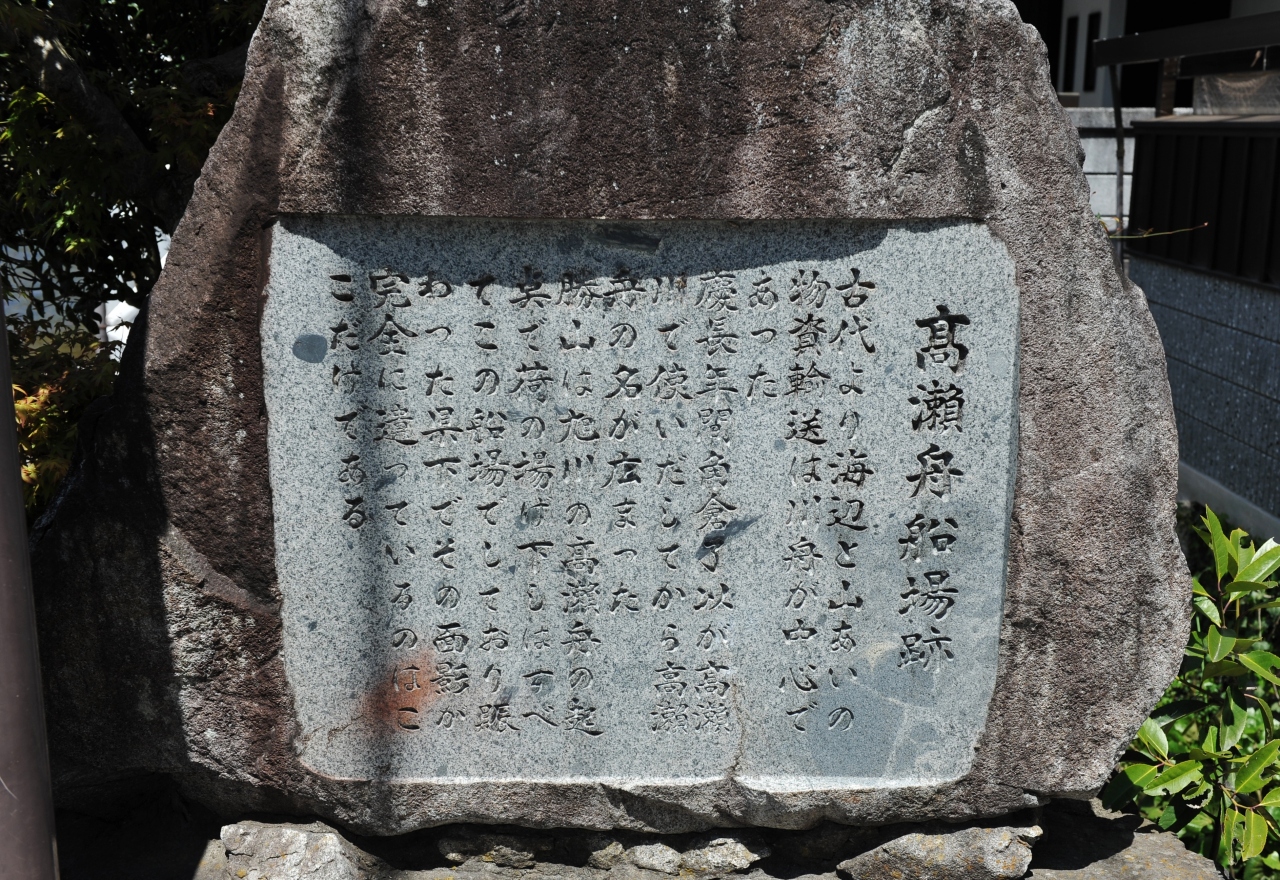 髙瀬舟船場跡
古代より海辺と山あいの
物資輸送は川舟が中心で
あった
慶長年間角倉了以が高瀬
川で使いだしてから高瀬
舟の名が広まった
勝山は旭川の高瀬舟の起
点で荷の場げ下しはすべ
てこの船場でしており賑
わった県下でその面影が
完全に遺っているのはこ
こだけである